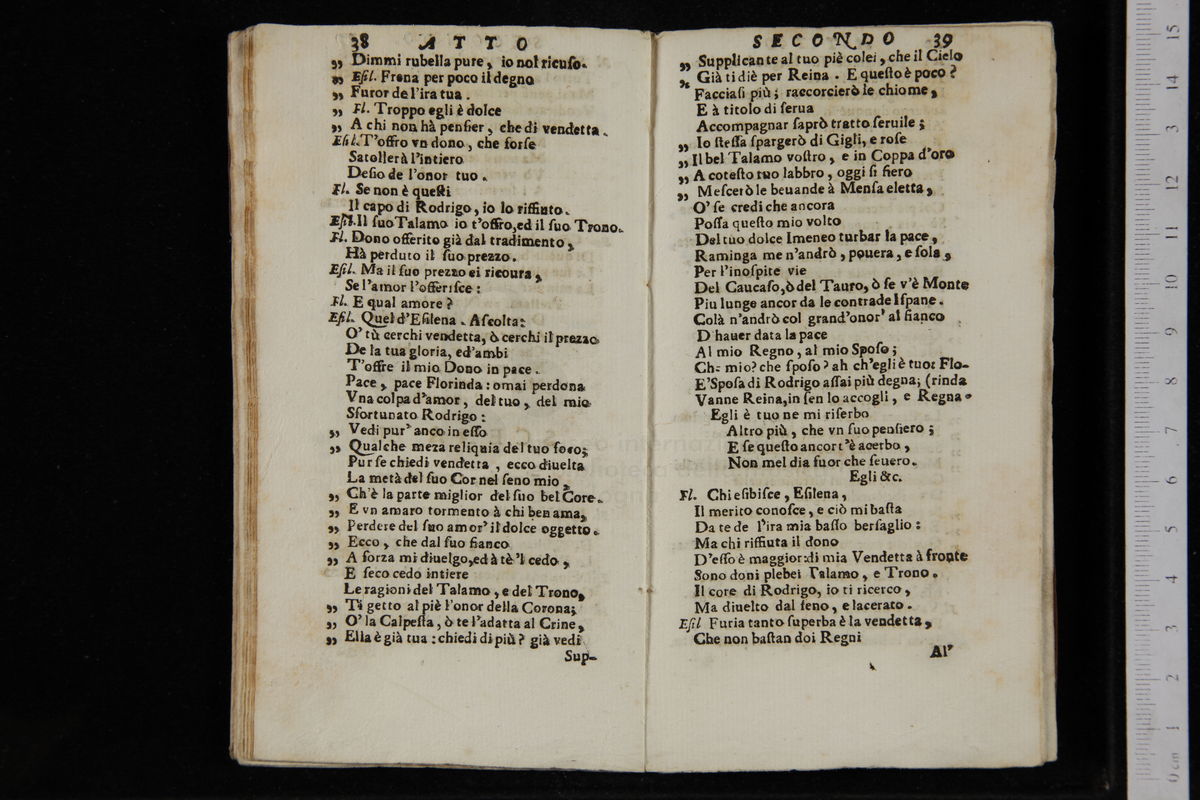 38 ATTO
„ Dimmi rubella pure, io nol ricuſo.
„ Eſil. Frena per poco il degno
„ Furor de l'ira tua.
„ Fl. Troppo egli è dolce
„ A chi non hà penſier, che di vendetta.
Eſil. T'offro vn dono, che forſe
Satollerà l'intiero
Deſio de l'onor tuo.
Fl. Se non è queſti
Il capo di Rodrigo, io lo riffiuto.
Eſil. Il ſuo Talamo io t'offro, ed il ſuo Trono.
Fl. Dono offerito già dal tradimento,
Hà perduto il ſuo prezzo.
Eſil. Ma il ſuo prezzo ei ricoura,
Se l'amor l'offeriſce:
Fl. E qual amore?
Eſil. Quel d'Eſilena. Aſcolta:
O' tù cerchi vendetta, ò cerchi il prezzo
De la tua gloria, ed'ambi
T'offre il mio Dono in pace.
Pace, pace Florinda: omai perdona
Vna colpa d'amor, del tuo, del mio
Sfortunato Rodrigo:
„ Vedi pur' anco in eſſo
„ Qualche meza reliquia del tuo foco;
Pur ſe chiedi vendetta, ecco diuelta
La metà del ſuo Cor nel ſeno mio,
„ Ch'è la parte miglior del ſuo bel Core.
„ E vn amaro tormento à chi ben ama,
„ Perdere del ſuo amor' il dolce oggetto.
„ Ecco, che dal ſuo fianco
„ A forza mi diuelgo, ed à tè 'l cedo,
E ſeco cedo intiere
Le ragioni del Talamo, e del Trono,
„ Ti getto al piè l'onor della Corona;
„ O' la Calpeſta, ò te l'adatta al Crine,
„ Ella è già tua: chiedi di più? già vedi
Sup-
SECONDO 39
„ Supplicante al tuo piè colei, che il Cielo
„ Già ti diè per Reina. E queſto è poco?
Facciaſi più; raccorcierò le chiome,
E à titolo di ſerua
Accompagnar ſaprò tratto ſeruile;
„ Io ſteſſa ſpargerò di Gigli, e roſe
„ Il bel Talamo voſtro, e in Coppa d'oro
„ A coteſto tuo labbro, oggi ſi fiero
„ Meſcerò le beuande à Menſa eletta,
O' ſe credi che ancora
Poſſa queſto mio volto
Del tuo dolce Imeneo turbar la pace,
Raminga me n'andrò, pouera, e ſola,
Per l'inoſpite vie
Del Caucaſo, ò del Tauro, ò ſe v'è Monte
Piu lunge ancor da le contrade Iſpane.
Colà n'andrò col grand'onor' al fianco
D'hauer data la pace
Al mio Regno, al mio Spoſo;
Che mio? che ſpoſo? ah ch'egli è tuo: Flo-
E'Spoſa di Rodrigo aſſai più degna; (rinda
Vanne Reina, in ſen lo accogli, e Regna.
Egli è tuo ne mi riſerbo
Altro più, che vn ſuo penſiero;
E ſe queſto ancor t'è acerbo,
Non mel dia fuor che ſeuero.
Egli &c.
Fl. Chi eſibiſce, Eſilena,
Il merito conoſce, e ciò mi baſta
Da te de l'ira mia baſſo berſaglio:
Ma chi riffiuta il dono
D'eſſo è maggior: di mia Vendetta à fronte
Sono doni plebei Talamo, e Trono.
Il core di Rodrigo, io ti ricerco,
Ma diuelto dal ſeno, e lacerato.
Eſil Furia tanto ſuperba è la vendetta,
Che non baſtan doi Regni
Al'